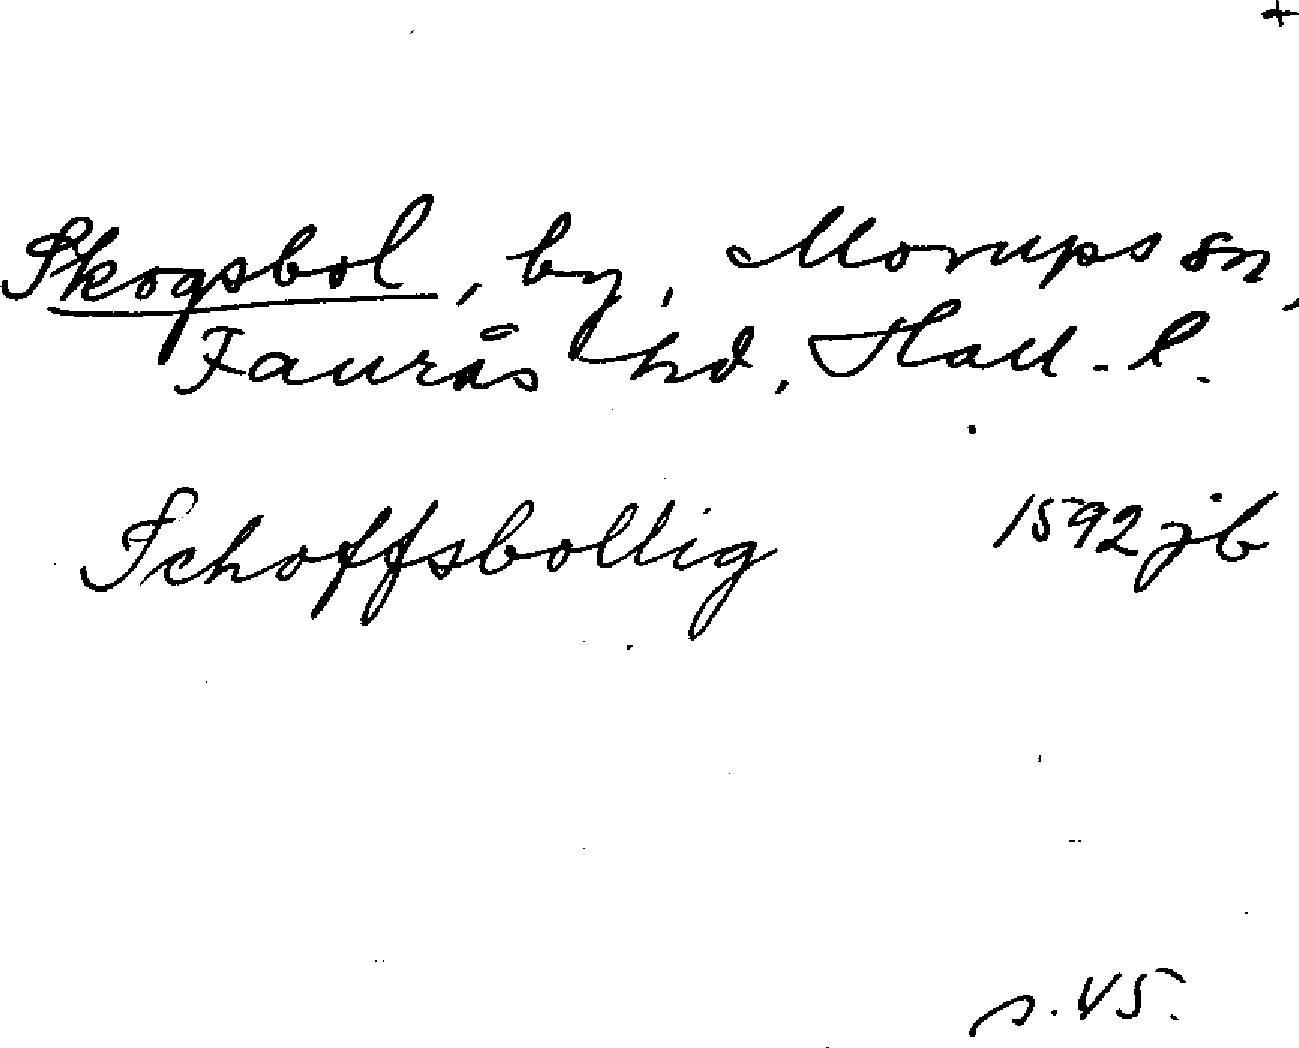 +
Skogsbol, by, Morups sn,
Faurås hd, Hall. l.
Schoffsbollig 1592 jb
s. 45.